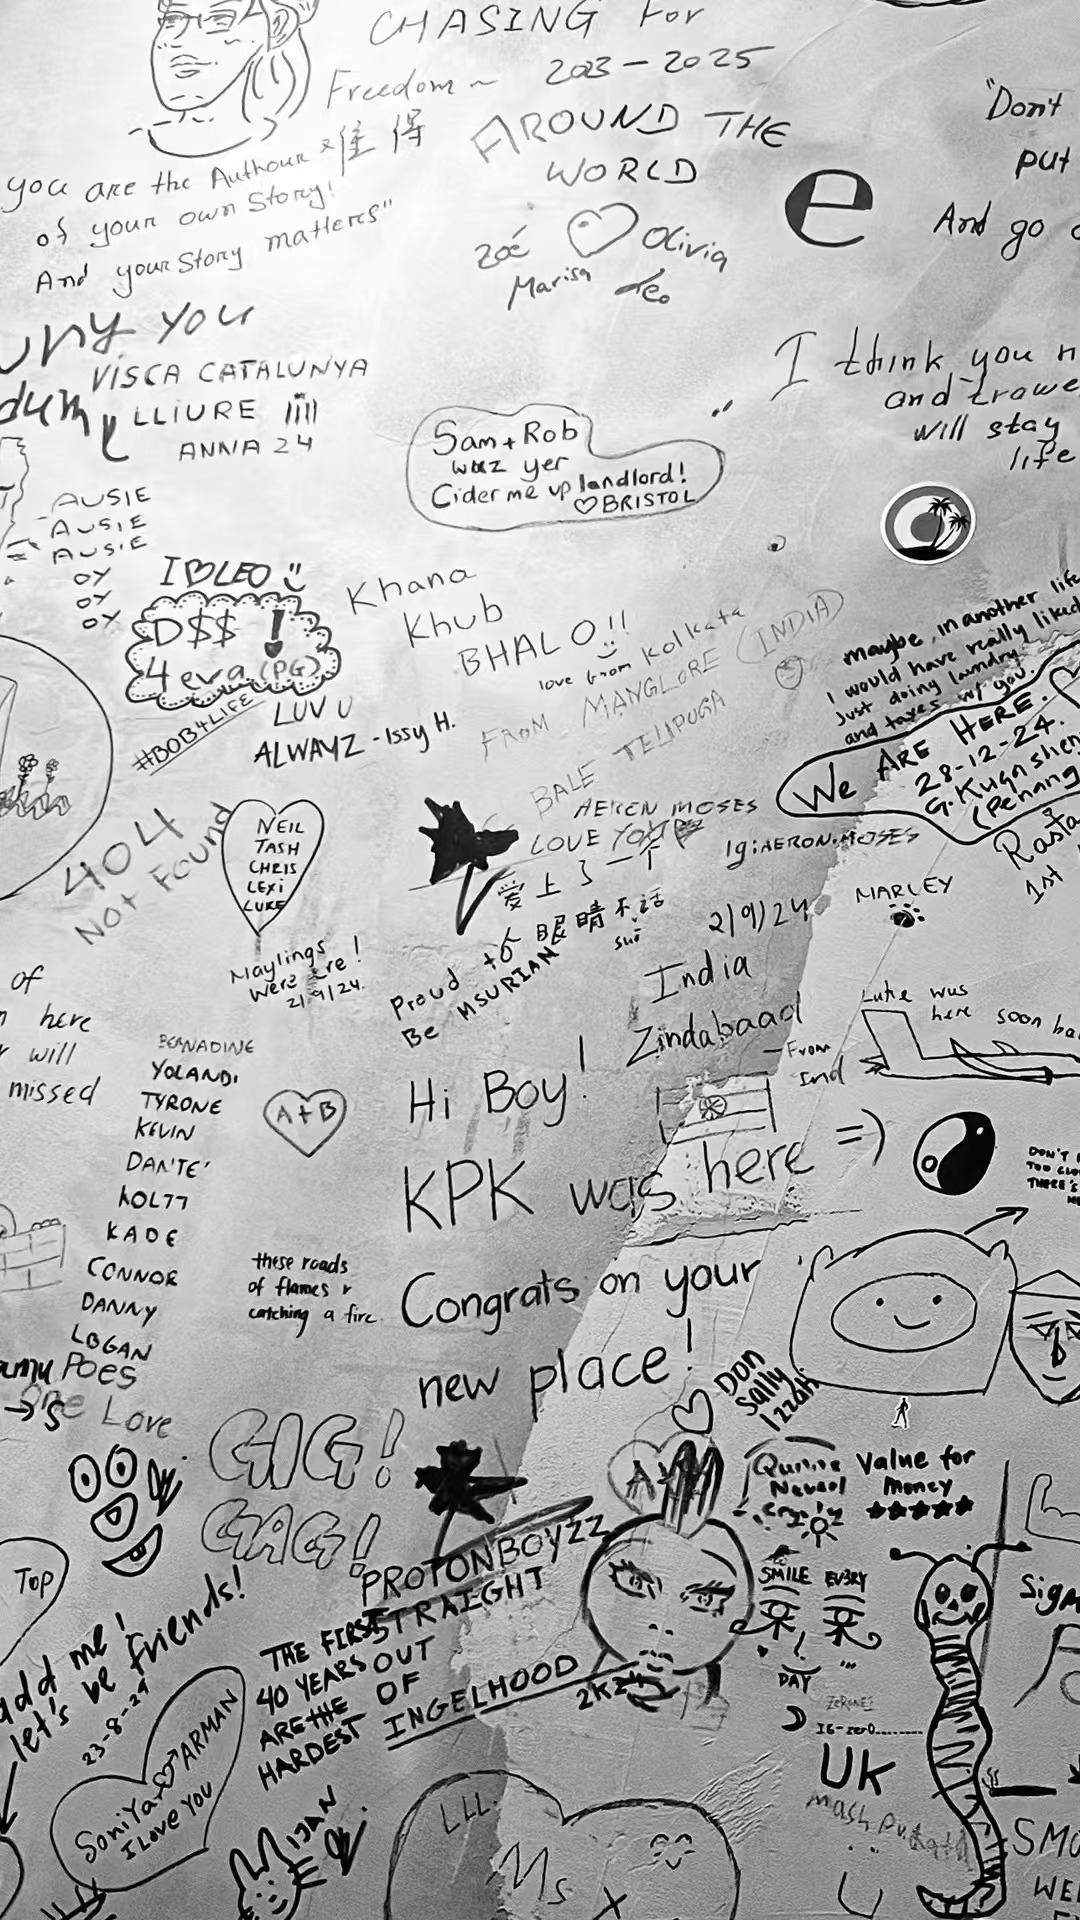 CHASING For
Freedom ~
2023 - 2025
AROUND THE
WORLD
Zoé
Olivia
Marisa
Leo
难得
you are the Authour
of your own Story!
And your Story matters"
e
"Don't
put
And go
you
VISCA CATALUNYA
LLIURE
ANNA 24
I think you
and trave
will stay
life
Sam + Rob
wuz yer
Cider me up landlord!
♡ BRISTOL
AUSIE
AUSIE
AUSIE
OY
OY
OY
I ♡ LEO
D$$ !
4 eva (PG)
#BOB4LIFE
LUV U
ALWAYZ - Issy H.
Khana
Khub
BHALO!!
love from Kolkata
(INDIA)
FROM MANGLORE
BALE TELIPUGA
AERON MOSES
LOVE YOU
Ig: AERON.MOSES
maybe in another life
I would have really liked
Just doing laundry
and taxes w/ you.
We ARE HERE.
28-12-24.
(Penang
Rasta
1st
404
Not Found
NEIL
TASH
CHRIS
LEXI
LUKE
Maylings
Were ere!
21/9/24.
爱上了一个
眼睛不
Proud to
Be MSURIAN
2/9/24
India
Zindabaad
- From
Ind
MARLEY
Luke was
here soon ba
of
here
will
missed
BERNADINE
YOLANDI
TYRONE
KEVIN
DANTE'
KOL77
KADE
CONNOR
DANNY
LOGAN
A + B
Hi Boy!
KPK was here =)
Congrats on your
new place!
these roads
of flames r
catching a fire
DON'T
TOO CLO
THERE'S
Poes
One Love
GIG!
GAG!
Don
Sally
Izzah
Value for
Money
★★★★★
TOP
add me!
let's be friends!
23-8-24
PROTONBOYZZ
STRAIGHT
OUT
OF
INGELHOOD
2K24
THE FIRST
40 YEARS
ARE THE
HARDEST
SMILE EV3RY
DAY
...
IG-zer0........
UK
Sigm
SoniYa ♡ ARMAN
I Love YOU
IJAN
LLL
Ms
X
SMO
WE